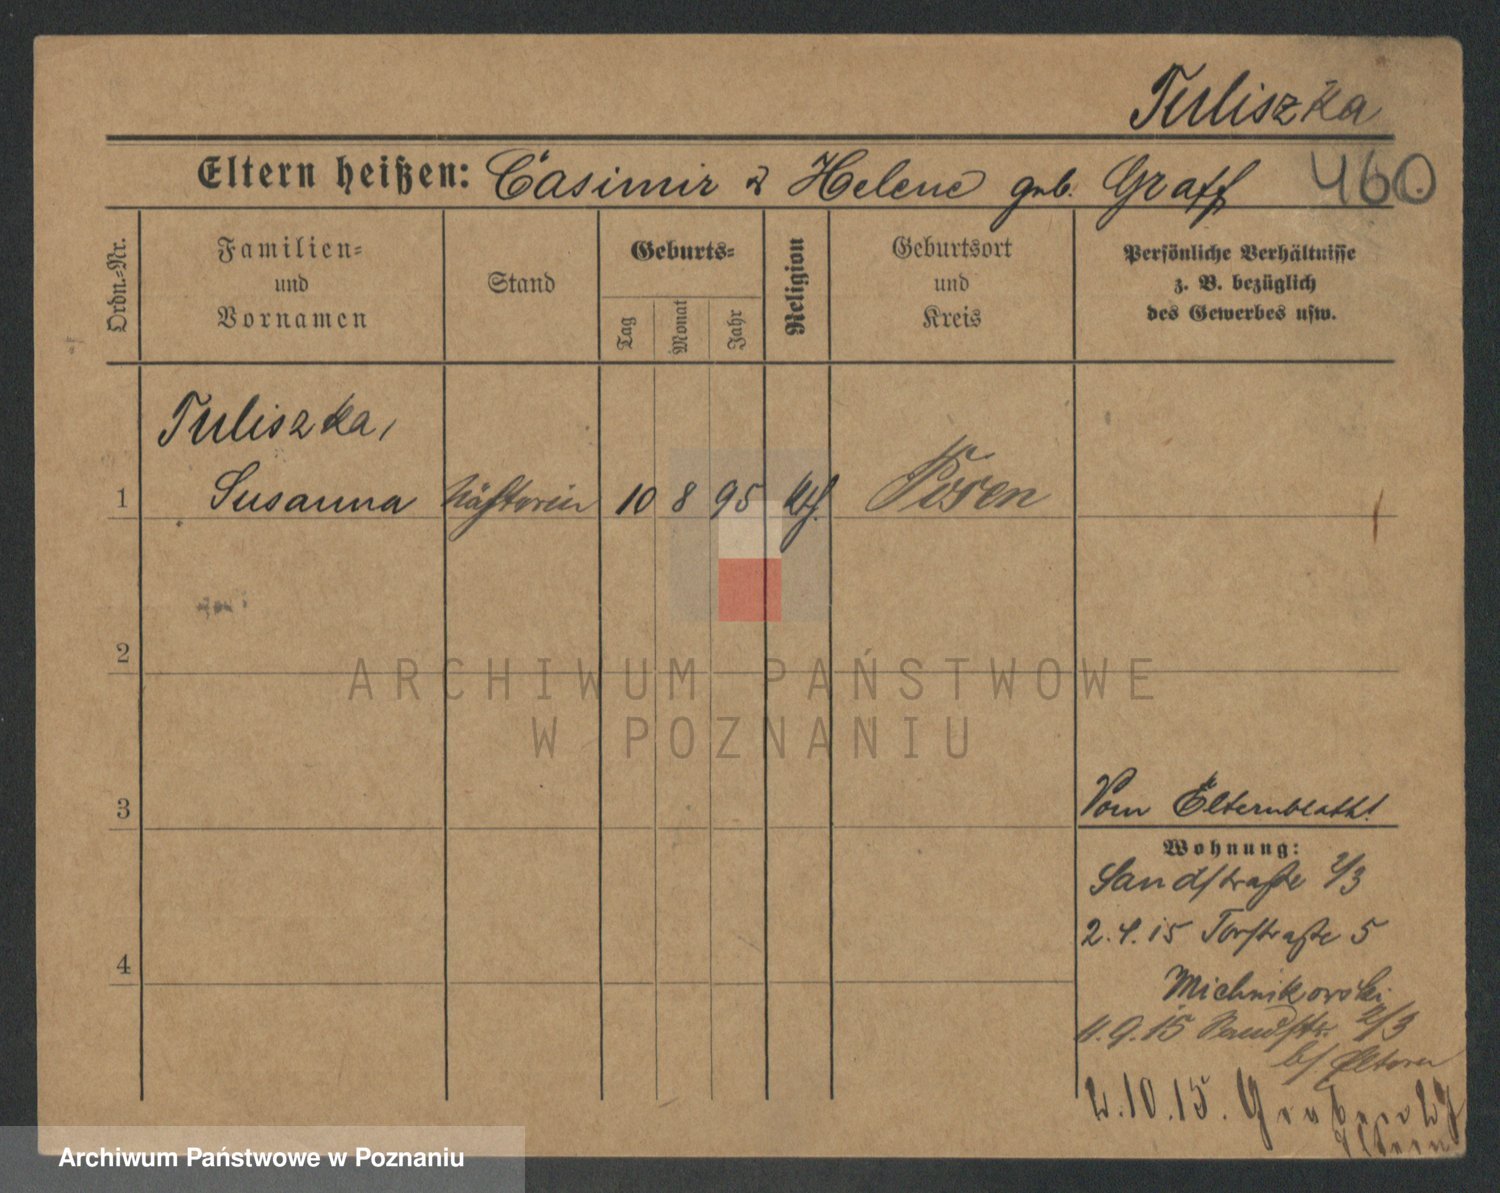 Tuliszka
Eltern heißen: Casimir & Helene geb. Graff 460
Ordn.-Nr.
Familien- und Vornamen
Stand
Geburts-
Tag
Monat
Jahr
Religion
Geburtsort und Kreis
Persönliche Verhältnisse
z. B. bezüglich
des Gewerbes usw.
Tuliszka,
1 Susanna Nähterin 10 8 95 kth. Posen
2
3
Vom Elternblatt!
Wohnung:
Sandstraße 2/3
2.4.15 Torstraße 5
4
Michnikowski
11.9.15 Sandstr. 2/3
b/ Eltern
2.10.15.
Eltern
ARCHIWUM PAŃSTWOWE
W POZNANIU
Archiwum Państwowe w Poznaniu